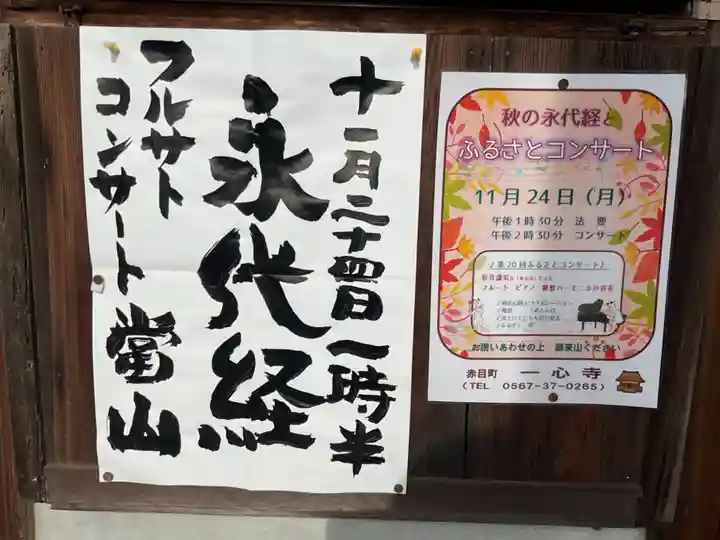 十一月二十四日一時半
永代経
フルサト
コンサート 當山
秋の永代経と
ふるさとコンサート
11月24日（月）
午後1時30分 法 要
午後2時30分 コンサート
♪第20回ふるさとコンサート♪
フルート ピアノ
お誘いあわせの上 御来山ください
赤目町 一心寺
（TEL 0567-37-0265）